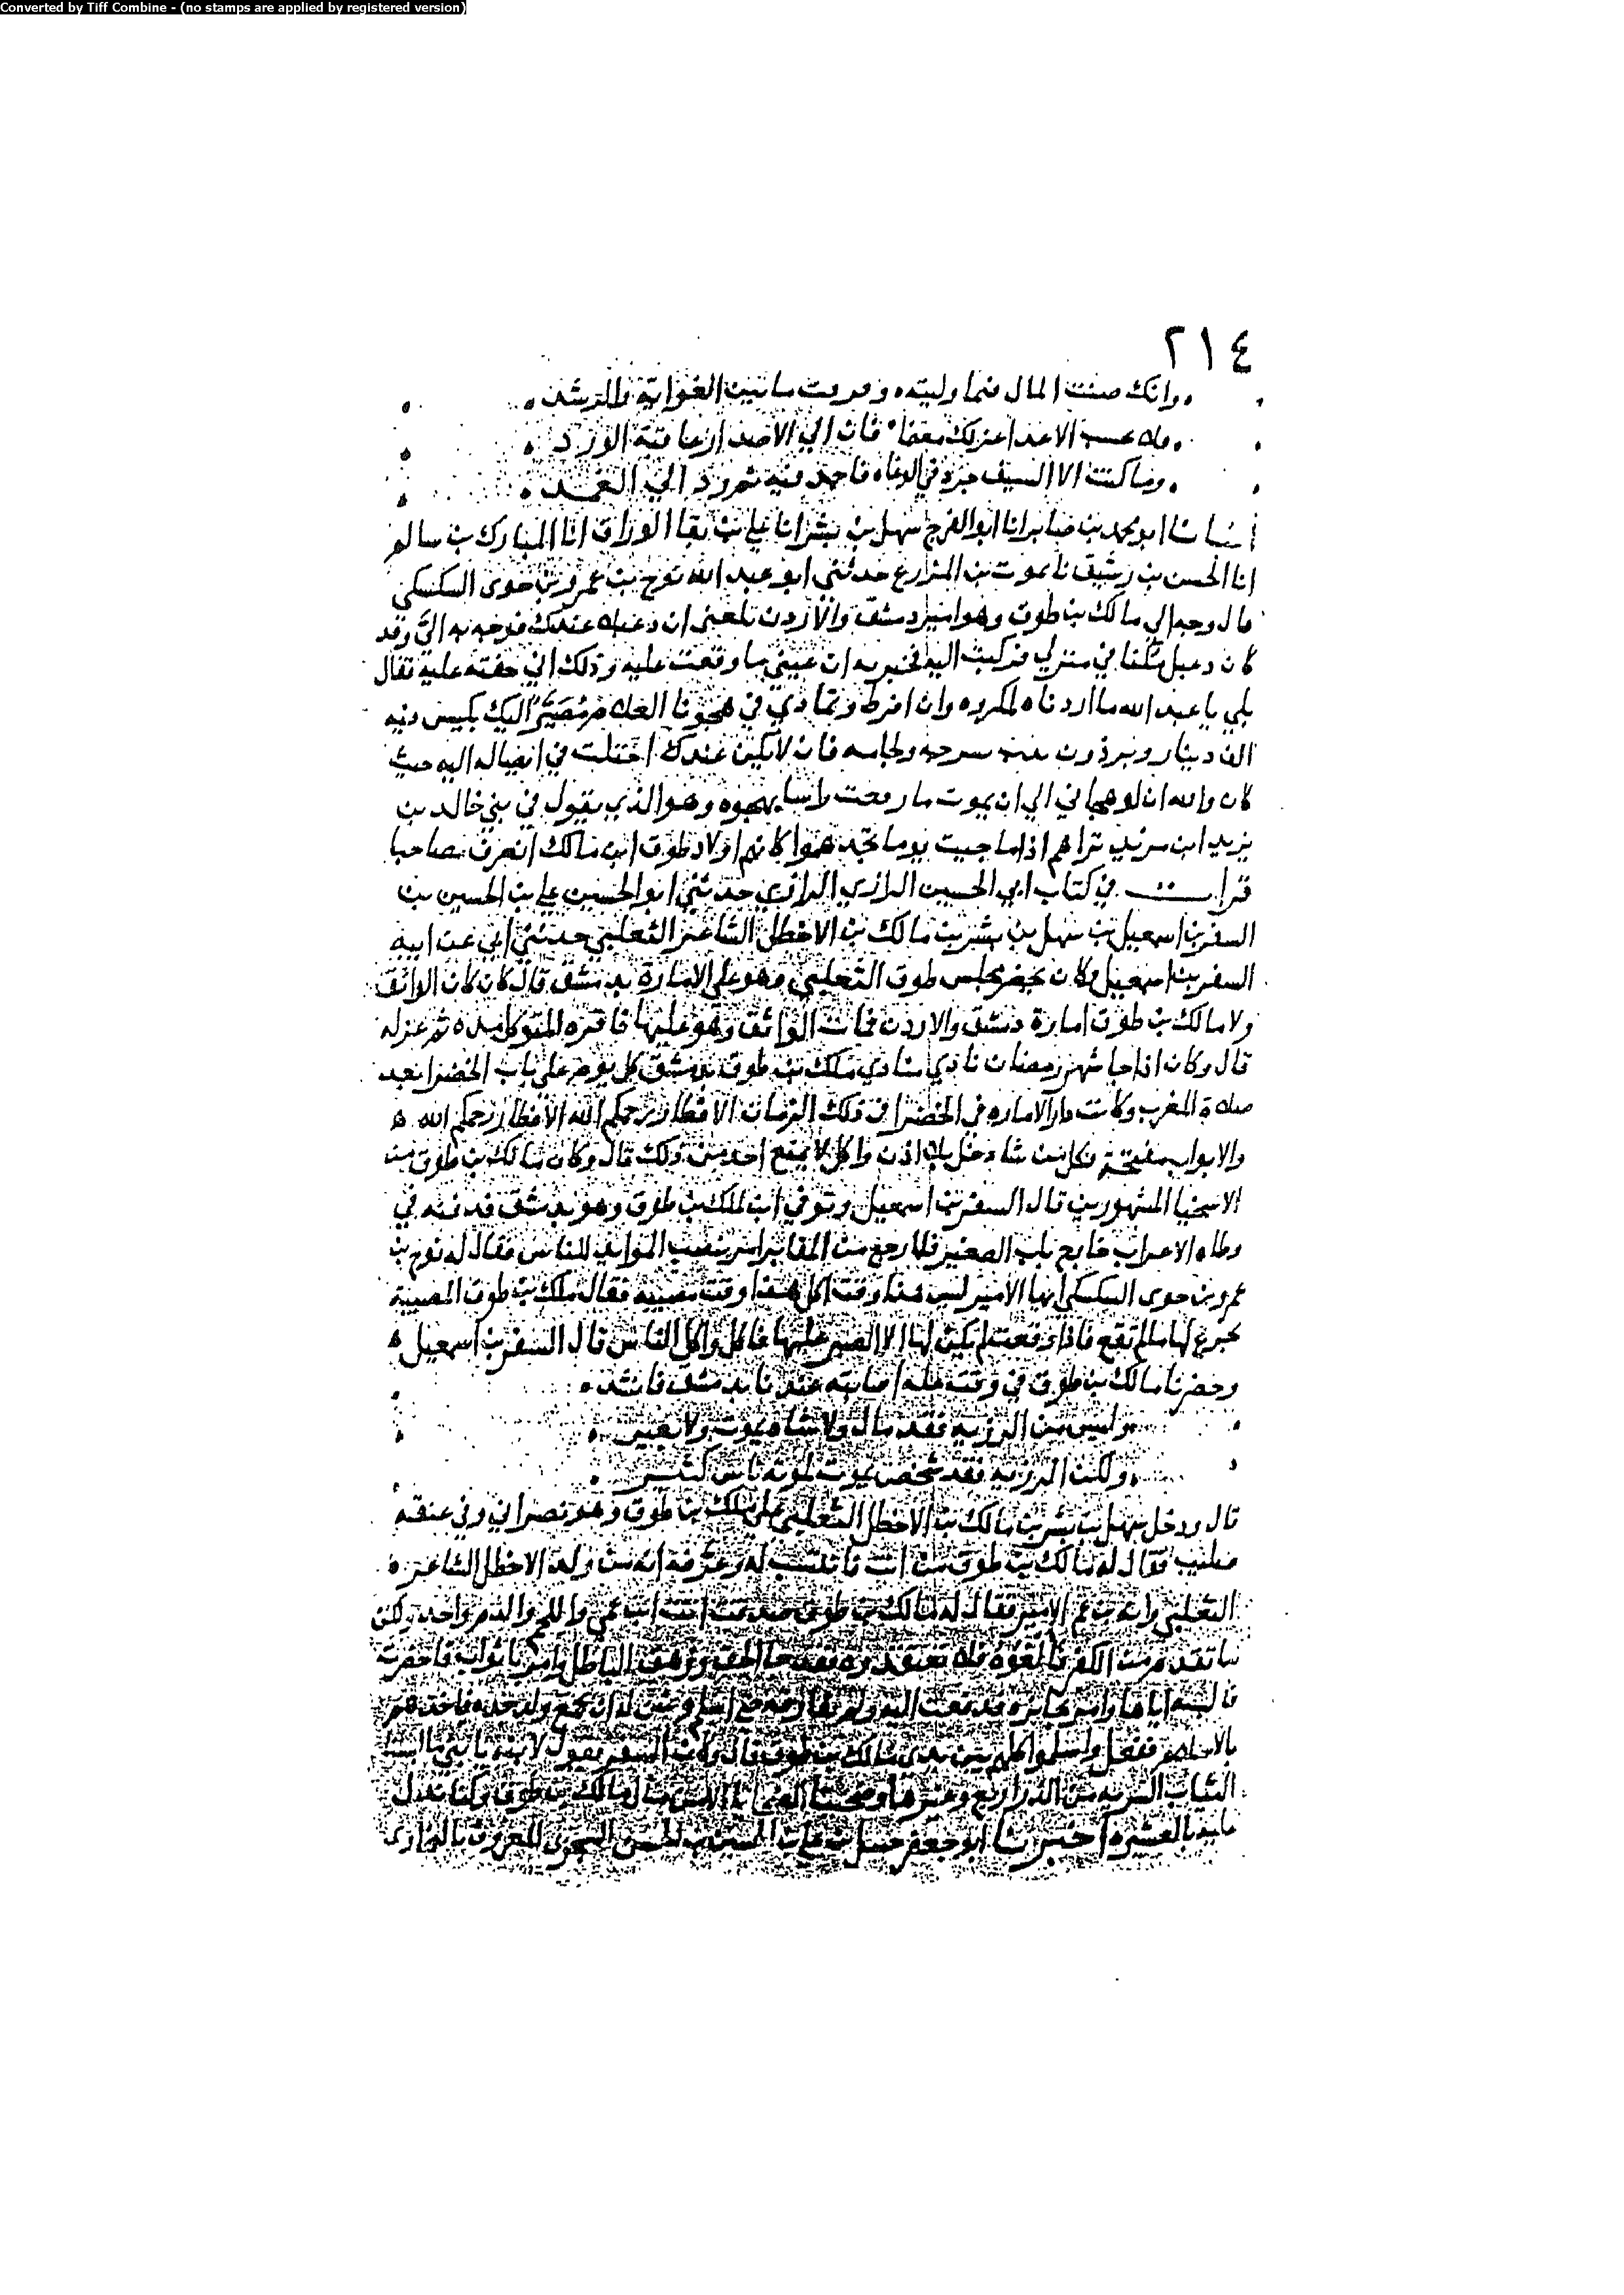 Converted by Tiff Combine - (no stamps are applied by registered version)
٢١٤
وانك صنت المال فيما وليته وفرقت ما بين الغواية والرشد
فلا يحسب الاعدا عزلك مغنما فان الي الاصدار عاقبة الورد
وما كنت الا السيف جرد في الوغا فاحمد فيه ثم رد الي الغمد
انبانا ابو محمد بن صابر انا ابو الفرج سهل بن بشر انا علي بن بقا الوراق انا المبارك بن سالم
انا الحسن بن رشيق نا يموت بن المزارع حدثني ابو عبد الله نوح بن عمرو بن حوى السكسكي
قال وجه الي مالك بن طوق وهو امير دمشق والاردن بلغني ان دعبلا عندك فوجه به الي وقد
كان دعبل في منزلي فركبت اليه فخبرته ان عيني ما وقعت عليه وذلك اني خفته عليه فقال
بلي يا عبد الله ما اردناه لمكروه وان افرط وتمادي في هجونا اليك بكيس فيه
الف دينار وببرذون بسرجه ولجامه فان لا يكن عندك احتلت في ايصاله اليه حيث
كان والله ان لو هجاني الي ان يموت ما رفعت راسا بهجوه وهو الذي يقول في بني خالد بن
يزيد ابن مزيد تراهم اذا ما جيت يوما تجدهموا كانهم اولاد طوق ابن مالك انعرف صاحبا
قرات في كتاب ابي الحسين الرازي حدثني ابو الحسين علي بن الحسين بن
السفر بن اسمعيل بن سهل بن بشر بن مالك بن الاخطل الشاعر التغلبي حدثني ابي عن ابيه
السفر بن اسمعيل وكان يحضر مجلس طوق التغلبي وهو علي الامارة بدمشق قال كان الواثق
ولا مالك بن طوق امارة دمشق والاردن فمات الواثق وهو عليها فاقره المتوكل مده ثم عزله
قال وكان اذا جا شهر رمضان نادي منادي ملك بن طوق بدمشق كل يوم علي باب الخضرا بعد
صلاة المغرب وكانت دار الاماره في الخضرا في ذلك الزمان الافطار رحمكم الله الافطار رحمكم الله
والابواب مفتحة فكل من شا دخل بلا اذن واكل لا يمنع احد من ذلك قال وكان مالك بن طوق من
الاسخيا المشهورين قال السفر بن اسمعيل وتوفي ابن لملك بن طوق وهو بدمشق فدفنه في
وطاه الاعراب خارج باب الصغير فلما رجع من المقابر امر بنصب الموايد للناس فقال له نوح بن
عمرو بن حوى السكسكي ايها الامير ليس هذا وقت اكل هذا وقت مصيبة فقال ملك بن طوق المصيبة
يجزع لها ما لم تقع فاذا وقعت لم يكن لها الا الصبر عليها فاكل واكل الناس قال السفر بن اسمعيل
وحضرنا مالك بن طوق في وقت علة اصابته عندنا بدمشق فانشد
وليس من الرزيه فقد مال ولا شاه يموت ولا بعير
ولكن الرزيه فقد شخص يموت لموته ناس كثير
قال ودخل سهل بن بشر بن مالك بن الاخطل التغلبي علي ملك بن طوق وهو نصراني وفي عنقه
صليب فقال له مالك بن طوق من انت فانتسب له وعرفه انه من ولد الاخطل الشاعر
التغلبي وانه بن عم الامير فقال له مالك بن طوق صدقت انت ابن عمي واللحم والدم واحد ولكن
ما تقدم من الكفر فقد جا الحق وزهق الباطل وامر باثواب فاحضرت
فالبسه اياها وامر بجايزه فدفعت اليه ولم يفارقه حتي اسلم وضمن له ان يجمع ولد جده فاخذهم
بالاسلام ففعل واسلموا كلهم بين يدي مالك بن طوق قال وكان السفر يقول لابنه يا بني ما لبسنا
الثياب السرية من الدراريع وغيرها الا من مال مالك بن طوق وكنا ندل
عليه بالعشيره اخبرنا ابو جعفر حنبل بن علي بن الحسين بن الحسن السجزي المعروف بالبخاري